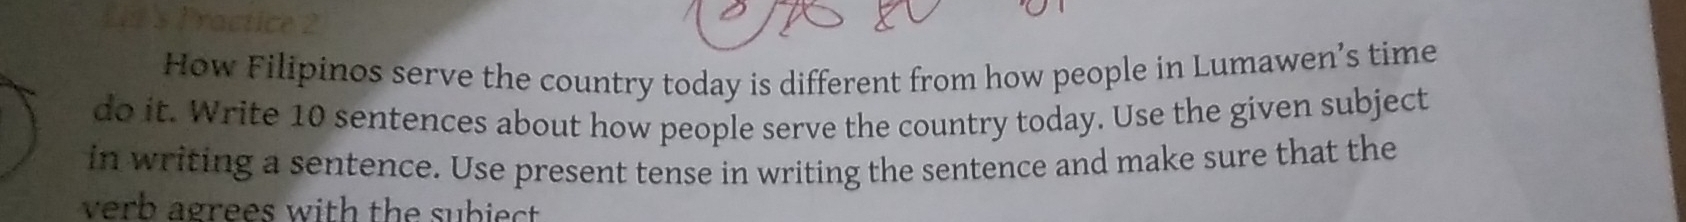 Let's Practice 2
How Filipinos serve the country today is different from how people in Lumawen's time
do it. Write 10 sentences about how people serve the country today. Use the given subject
in writing a sentence. Use present tense in writing the sentence and make sure that the
verb agrees with the subject